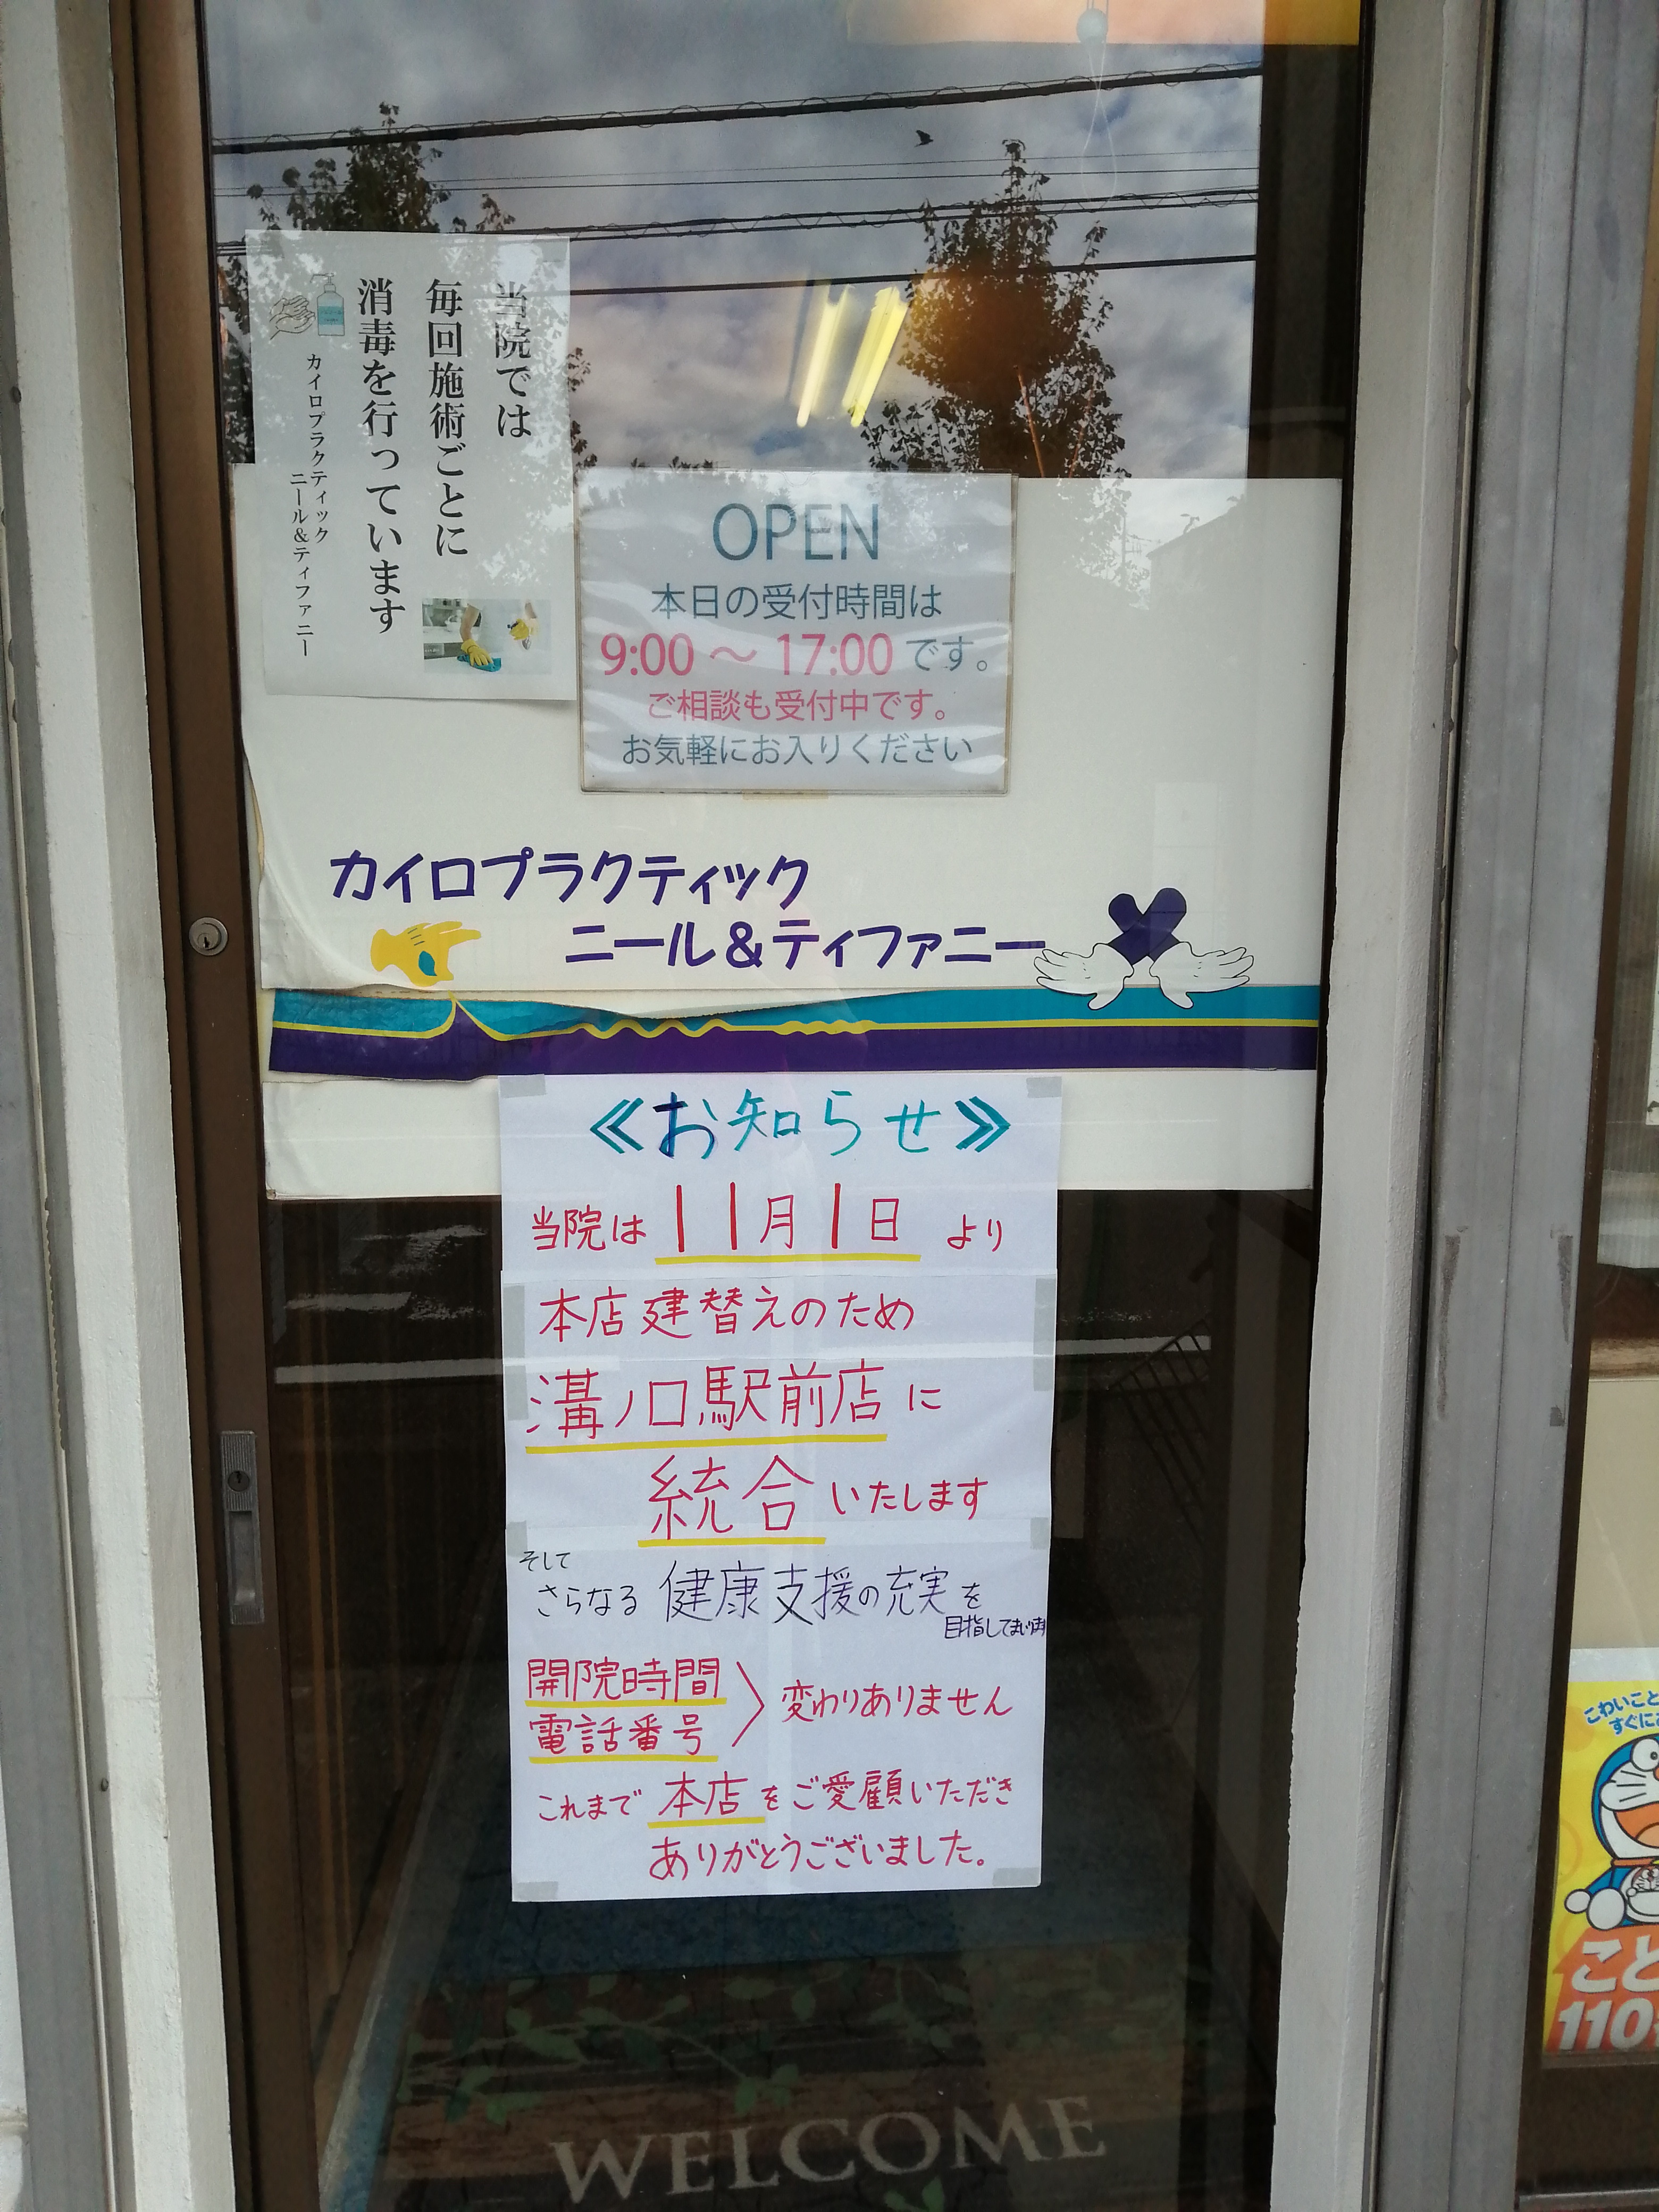 当院では
毎回施術ごとに
消毒を行っています
カイロプラクティック
ニール&ティファニー
OPEN
本日の受付時間は
9:00 ～ 17:00 です。
ご相談も受付中です。
お気軽にお入りください
カイロプラクティック
ニール&ティファニー
≪お知らせ≫
当院は 11月1日 より
本店建替えのため
溝ノ口駅前店に
統合いたします
そして
さらなる 健康支援の充実を
目指してまいります
開院時間
電話番号
変わりありません
これまで 本店をご愛顧いただき
ありがとうございました。
WELCOME
こわいこと
すぐに
こど
110